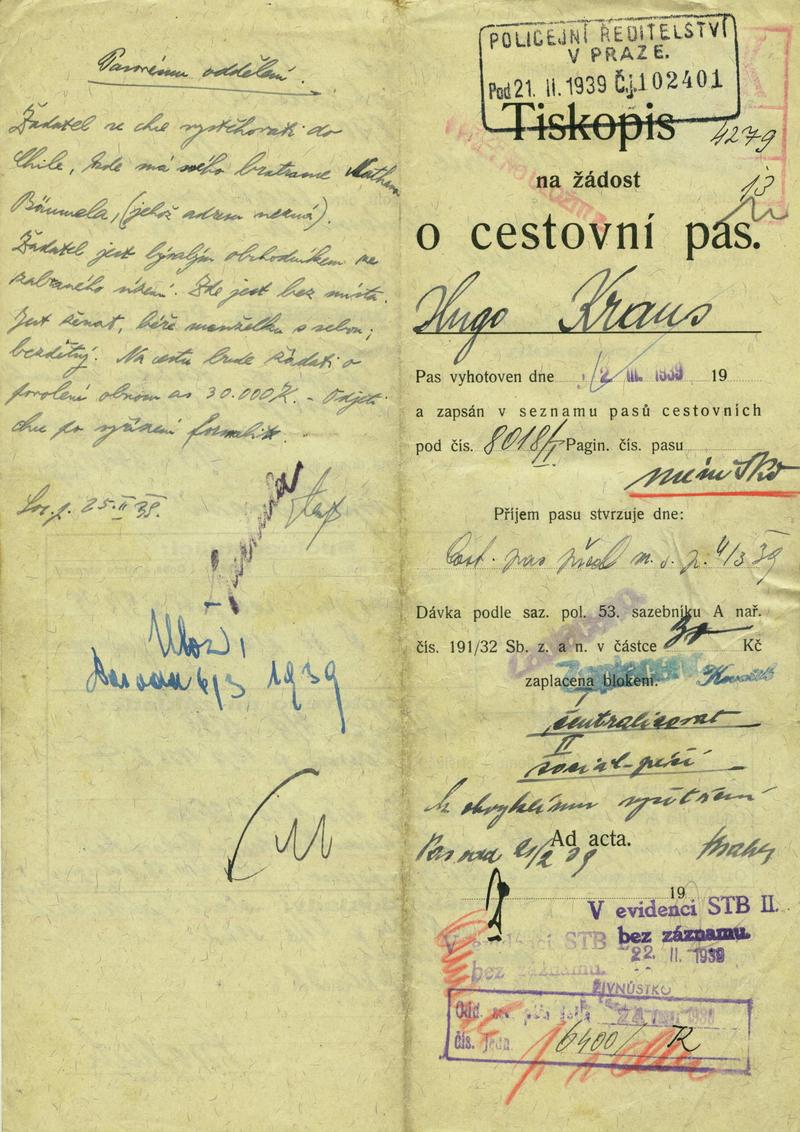 Pasovému oddělení.
Žadatel se chce vystěhovati do
Chile, kde má svého bratrance Nathana
Bäumela, (jehož adresu nezná).
Žadatel jest bývalým obchodníkem ze
zabraného území. Zde jest bez místa.
Jest ženat, béře manželku s sebou;
bezdětný. Na cestu bude žádati o
povolení obnosu as 30.000 K. - Odjeti
chce po vyřízení formalit.
25. II 39.
Ulož,
6/3 1939
POLICEJNÍ ŘEDITELSTVÍ
V PRAZE.
Pod 21. II. 1939 Č.j. 102401
Tiskopis
4279
na žádost
13
o cestovní pas.
Hugo Kraus
Pas vyhotoven dne 2 III. 1939 19
a zapsán v seznamu pasů cestovních
pod čís. 8018/I Pagin. čís. pasu
Příjem pasu stvrzuje dne:
Cest. pas před. 4/3 39
Dávka podle saz. pol. 53. sazebníku A nař.
čís. 191/32 Sb. z. a n. v částce 30 Kč
Zaplaceno
zaplacena bloкem.
I
centralisovat
II
K obvyklému vyšetření
Ad acta.
21/2 39
19
V evidenci STB II.
bez záznamu.
22. II. 1939
V evidenci STB
bez záznamu.
ŽIVNŮSTKO
čís. jedn. 6400/ R